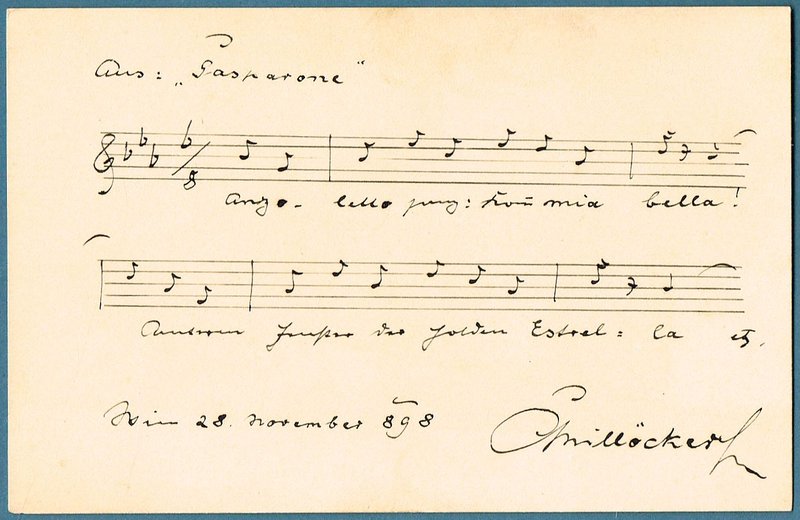 Aus: „Gasparone"
Anzo- letto sang: Kom̄ mia bella!
Unterm Fenster der holden Estrel= la etz.
Wien 28. November 898
CMillöcker